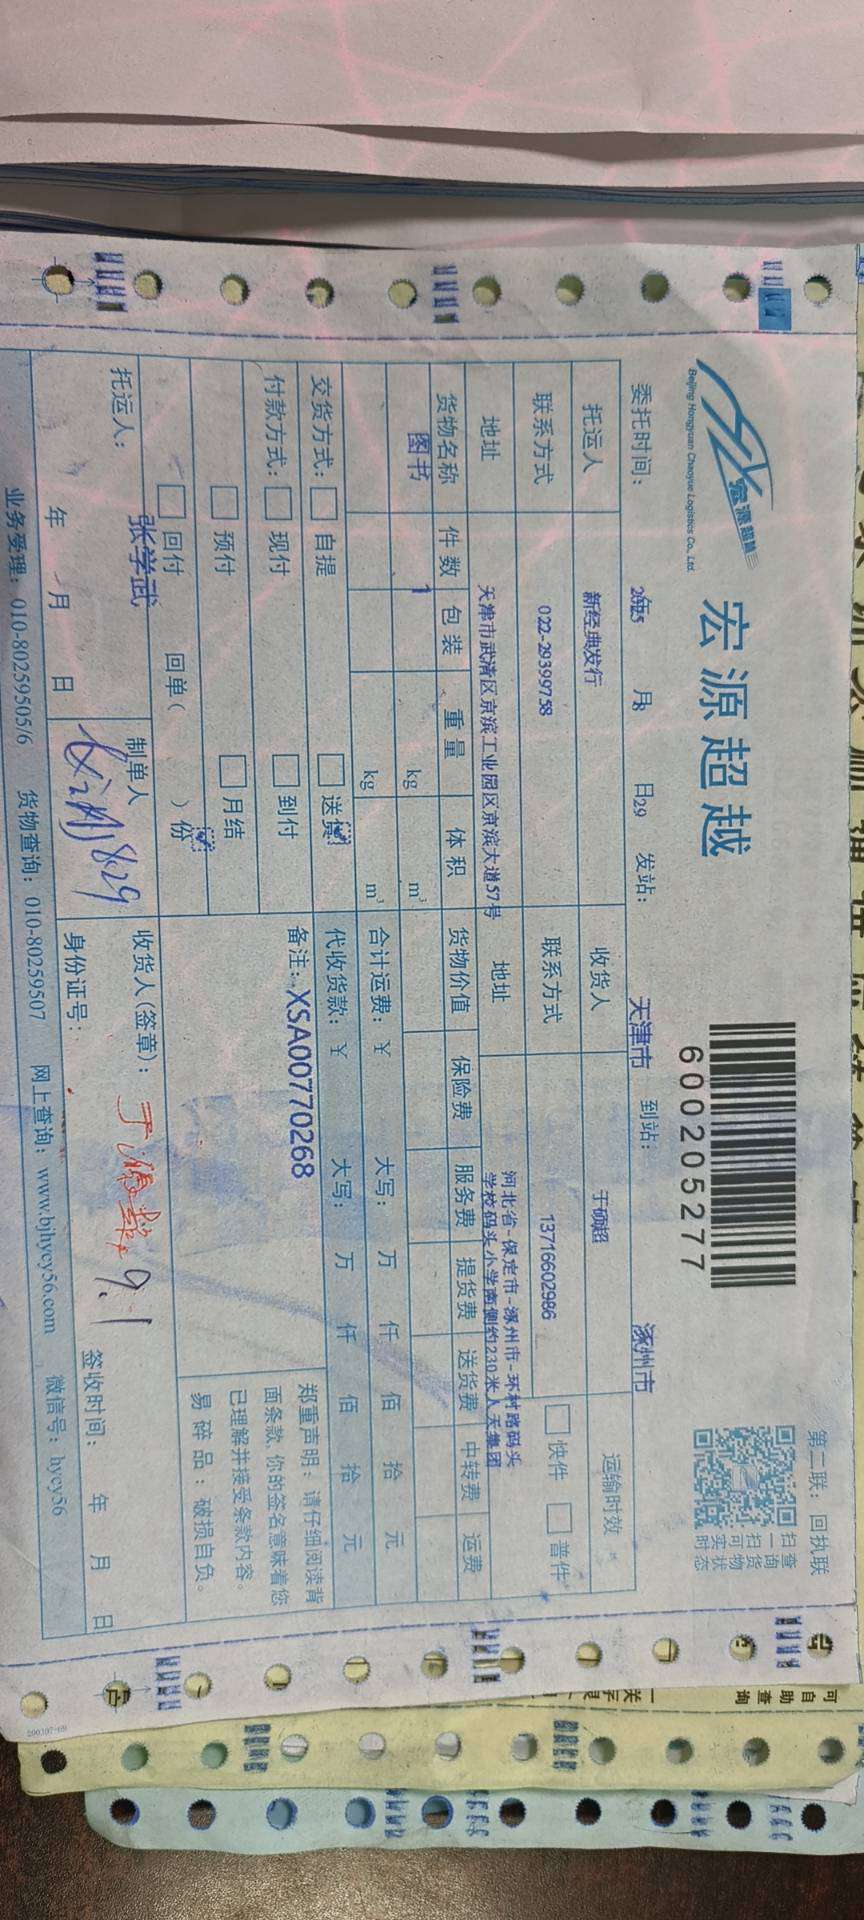 宏源超越
Beijing Hongyuan Chaoyue Logistics Co., Ltd.
宏源超越
600205277
第二联：回执联
扫一扫可实时
查询货物状态
委托时间： 2025年 8月 29日 发站： 天津市 到站： 涿州市
托运人 新经典发行 收货人 于硕超 运输时效
联系方式 022-29399758 联系方式 13716602986 快件 普件
地址 天津市武清区京滨工业园区京滨大道57号 地址 河北省-保定市-涿州市-环村路码头
学校码头小学南侧约230米人天集团
货物名称 件数 包装 重量 体积 货物价值 保险费 服务费 提货费 送货费 中转费 运费
图书 1 kg m³
kg m³
合计运费：￥ 大写： 万 仟 佰 拾 元
交货方式： 自提 送货 代收货款：￥ 大写： 万 仟 佰 拾 元
付款方式： 现付 到付 备注：XSA00770268
预付 月结
回付 回单（ ）份
郑重声明：请仔细阅读背
面条款，你的签名意味着您
已理解并接受条款内容。
易碎品：破损自负。
托运人： 张学武 制单人 8.29 收货人(签章)： 9.1
年 月 日 身份证号： 签收时间： 年 月 日
业务受理：010-80259505/6 货物查询：010-80259507 网上查询：www.bjhycy56.com 微信号：hycy56
可自助查询